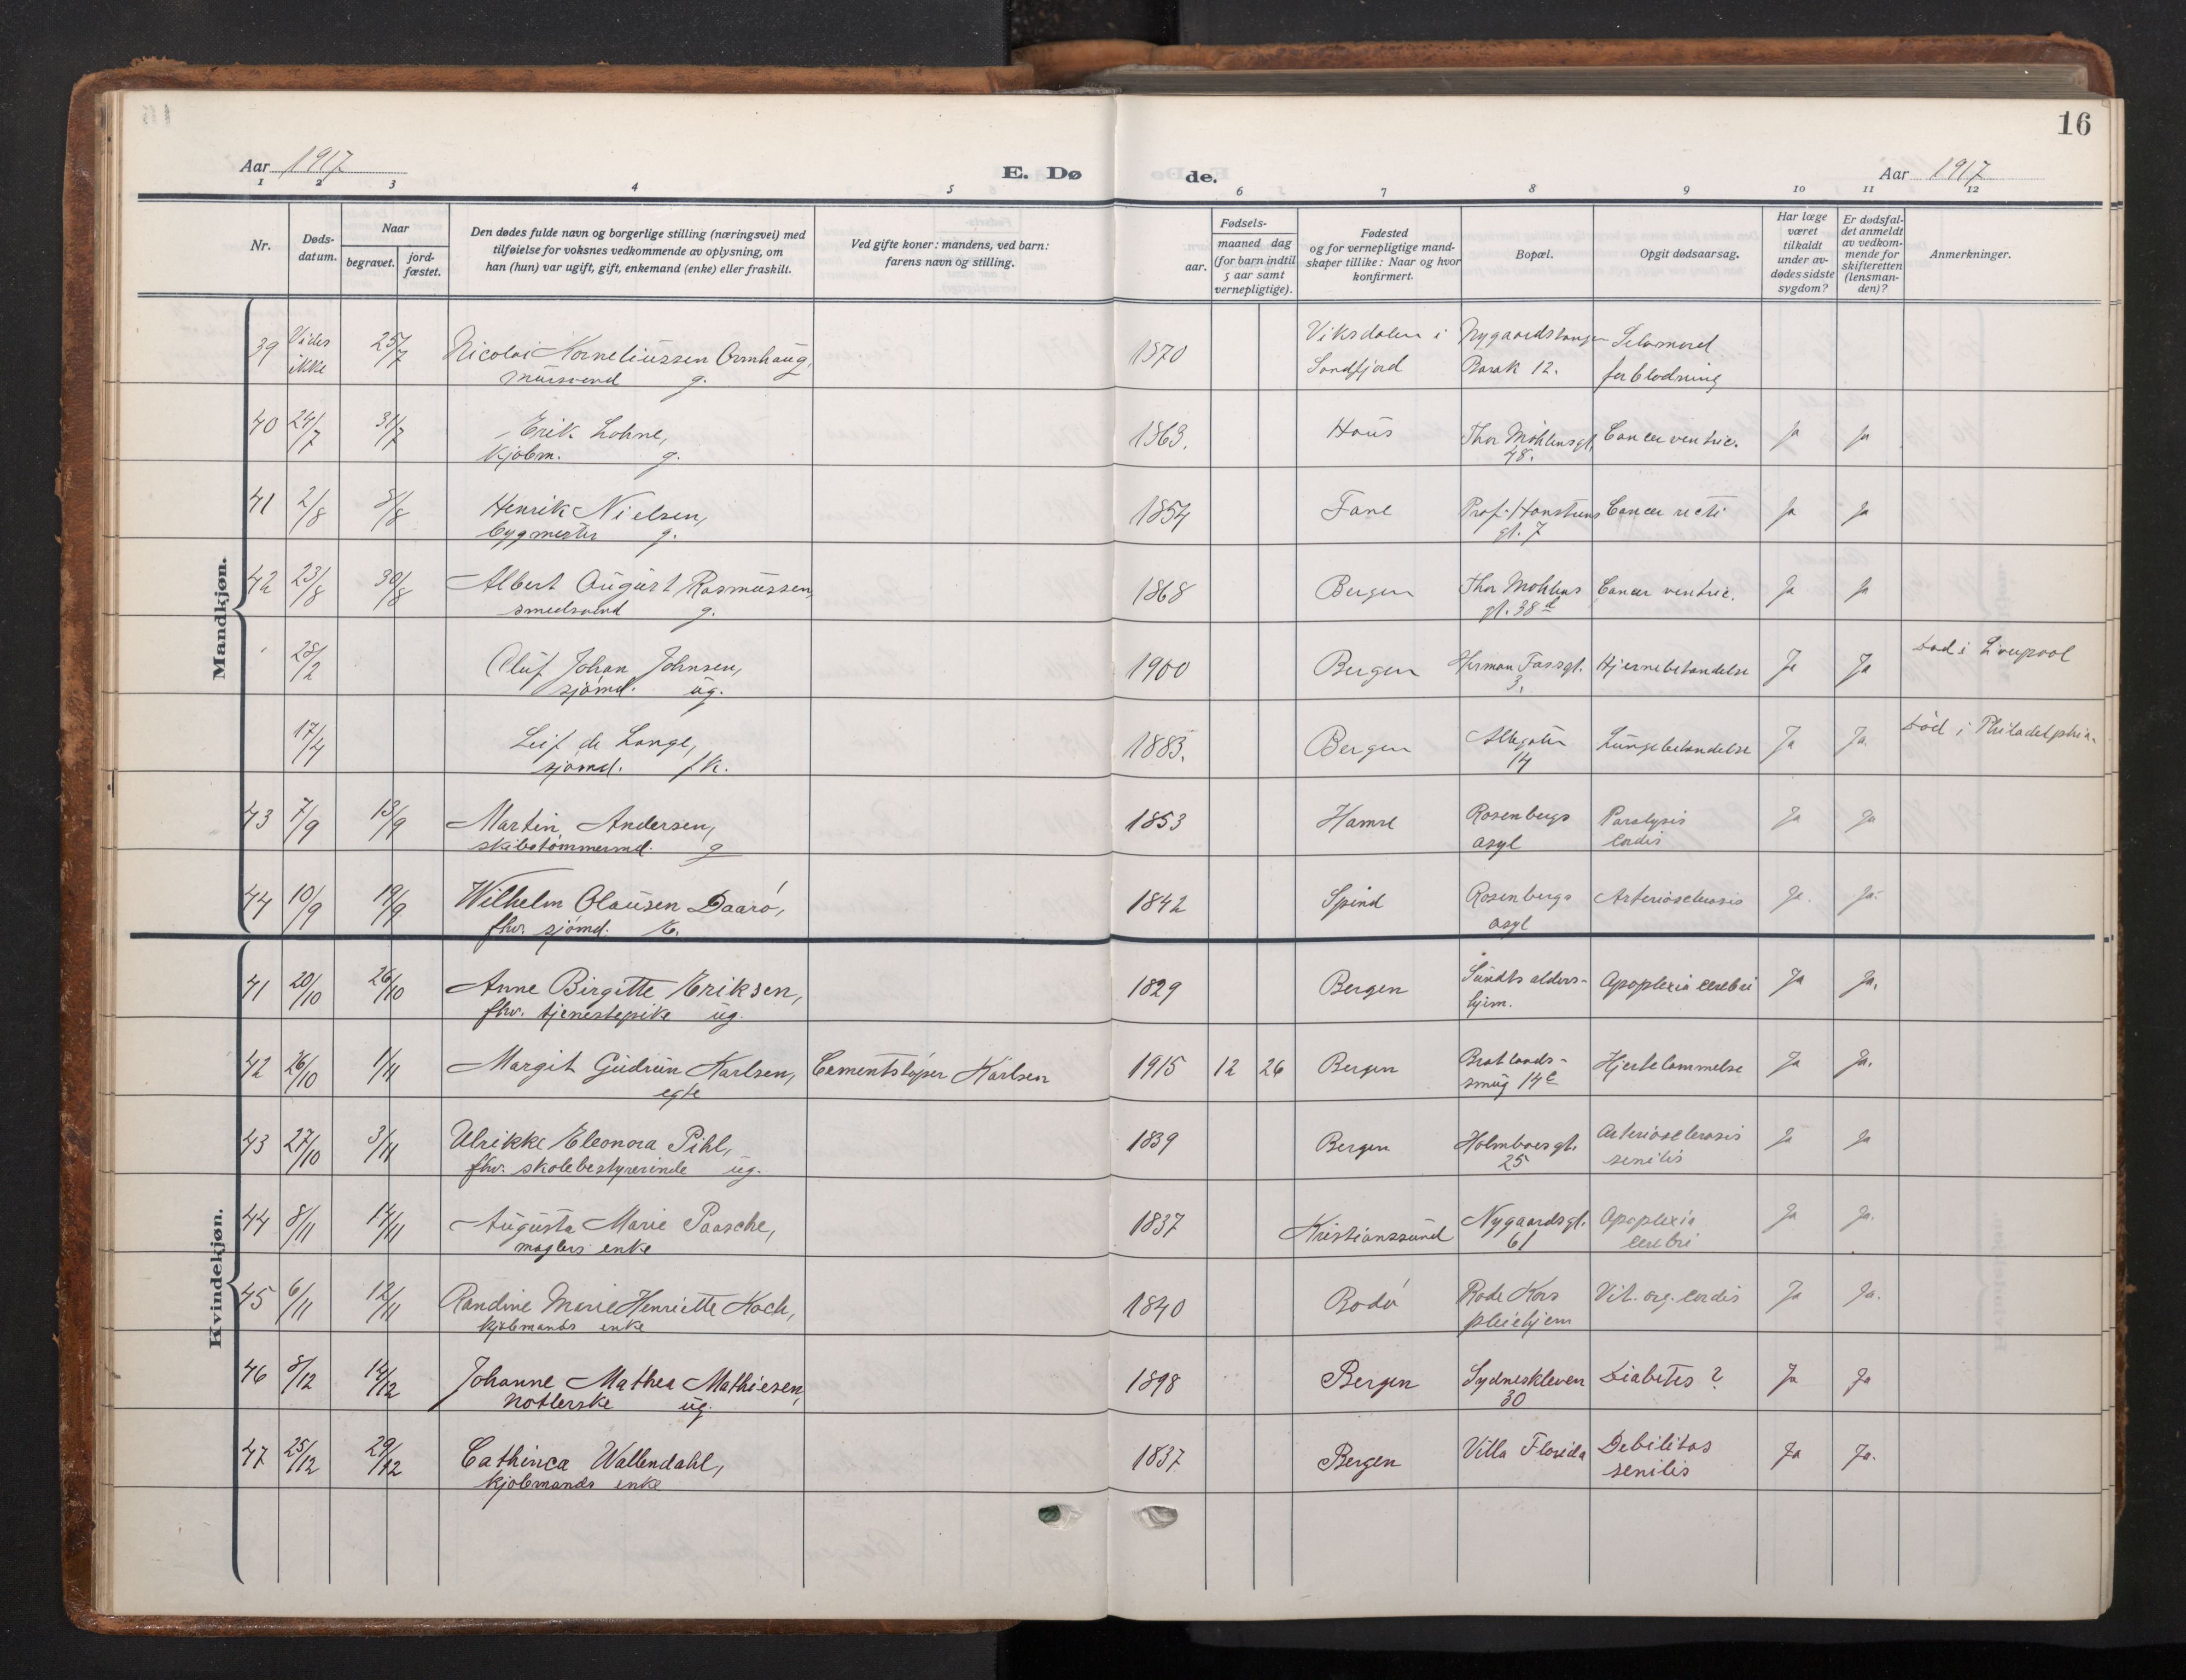 16
Aar 1917 E. Dø de. Aar 1917
1 2 3 4 5 6 7 8 9 10 11 12
Nr. Døds-datum. Naar begravet. jord-fæstet. Den dødes fulde navn og borgerlige stilling (næringsvei) med tilføielse for voksnes vedkommende av oplysning, om han (hun) var ugift, gift, enkemand (enke) eller fraskilt. Ved gifte koner: mandens, ved barn: farens navn og stilling. Fødsels- aar. maaned dag (for barn indtil 5 aar samt vernepligtige). Fødested og for vernepligtige mand-skaper tillike: Naar og hvor konfirmert. Bopæl. Opgit dødsaarsag. Har læge været tilkaldt under av-dødes sidste sygdom? Er dødsfal-det anmeldt av vedkom-mende for skifteretten (lensman-den)? Anmerkninger.
Mandkjøn.
39 Vides ikke 25/7 Nicolai Korneliussen 1870 Viksdalen i Nygaardstangen Selvmord
mursvend g. Sondfjord Barak 12. forblodning
40 24/7 31/7 Erik Lohne, 1863. Haus Thor Möhlensgt. Cancer ventric. Ja Ja
kjøbm. g. 48.
41 2/8 8/8 Henrik Nielsen, 1854 Fane Prof. Hansteens Cancer recti Ja Ja
bygmester g. gt. 7
42 23/8 30/8 Albert August Rasmussen, 1868 Bergen Thor Møhlens Cancer ventric. Ja Ja
smedsvend g. gt. 38 d
28/2 Oluf Johan Johnsen, 1900 Bergen Herman Fossgt. Hjernebetændelse Ja Ja Død i Liverpool
sjømd. ug. 3.
17/4 Leif de Lange, 1883. Bergen Allegaten Lungebetændelse Ja Ja. Død i Philadelphia.
sjømd. fk. 14
43 7/9 13/9 Martin Andersen, 1853 Hamre Rosenbergs Paralysis Ja Ja
skibstømmermd. g asyl cordis
44 10/9 19/9 Wilhelm Olausen Daarø, 1842 Spind Rosenbergs Arteriosclerosis Ja. Ja.
fhv. sjømd. E. asyl
Kvindekjøn.
41 20/10 26/10 Anne Birgitte Eriksen, 1829 Bergen Sundts alders- Apoplexia cerebri Ja Ja.
fhv. tjenestepike ug. hjem.
42 26/10 1/11 Margit Gudrun Karlsen, Cementstøper Karlsen 1915 12 26 Bergen Bratlands- Hjertelammelse Ja Ja.
egte smug 14 c
43 27/10 3/11 Ulrikke Eleonora Pihl, 1839 Bergen Holmboesgt. Arteriosclerosis Ja Ja
fhv. skolebestyrerinde ug. 25 senilis
44 8/11 14/11 Augusta Marie Paasche, 1837 Kristianssund Nygaardsgt. Apoplexia Ja Ja.
mæglers enke 61 cerebri
45 6/11 12/11 Randine Marie Henriette Koch, 1840 Bodø Røde Kors Vit. org. cordis Ja Ja.
kjøbmands enke pleiehjem
46 8/12 14/12 Johanne Mathea Mathiesen, 1898 Bergen Sydneskleven Diabetes? Ja Ja
notlerske ug. 30
47 25/12 29/12 Cathinca Wallendahl, 1837 Bergen Villa Florida Debilitas Ja Ja.
kjøbmands enke senilis